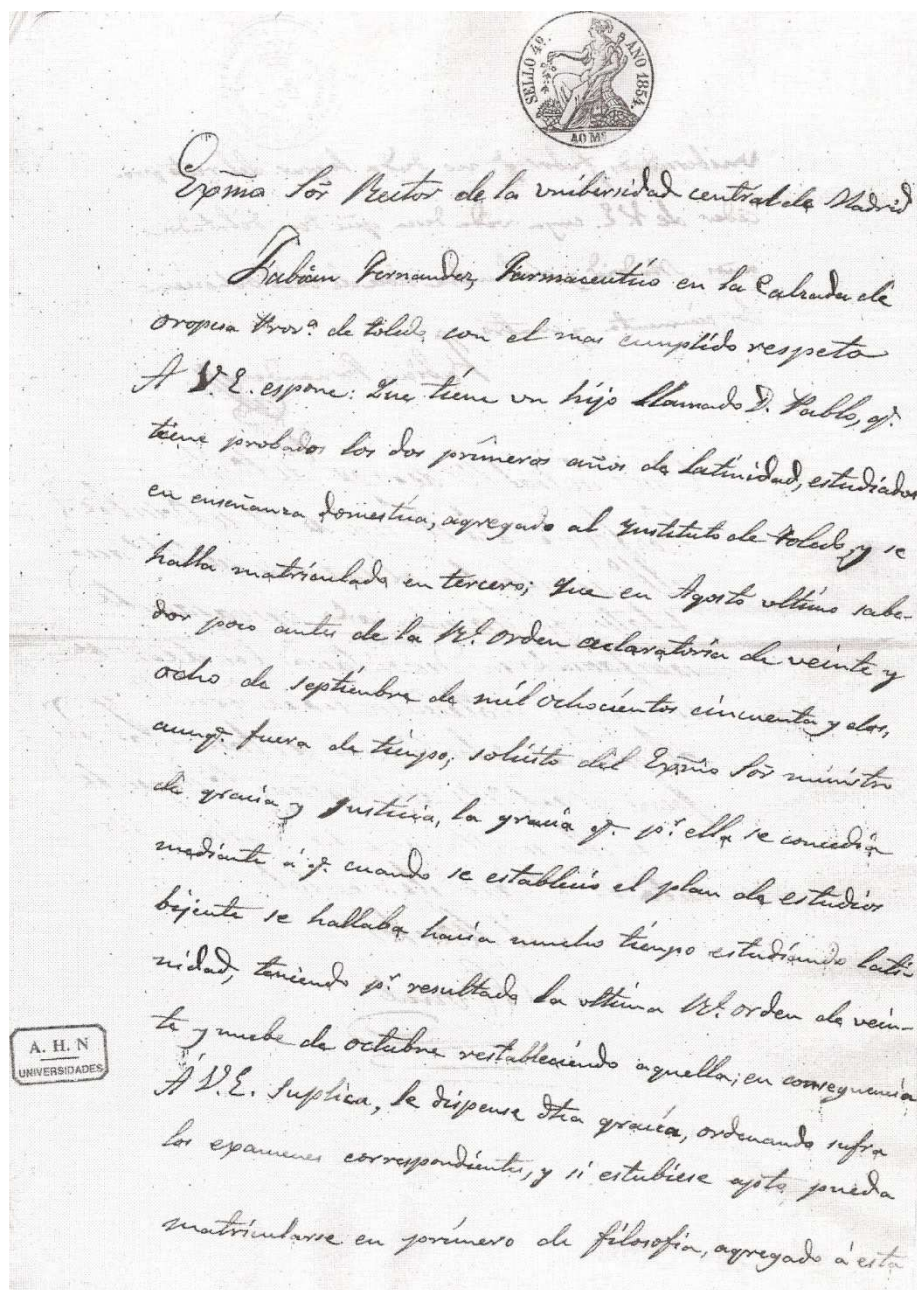 SELLO 4º. AÑO 1854.
40 Ms
Exp̃mo Sõr Rector de la vnibersidad central de Madrid
Fabian Fernandez, Farmaceutico en la Calzada de
oropesa Provª de toledo, con el mas cumplido respeto
A V.E. espone: Que tiene vn hijo llamado D. Pablo, q.
tiene probados los dos primeros años de latinidad, estudiados
en enseñanza domestica, agregado al Ynstituto de Toledo, y se
halla matriculado en tercero; Que en Agosto vltimo sabe-
dor poco antes de la Rl. orden aclaratoria de veinte y
ocho de septiembre de mil ochocientos cincuenta y dos,
aunq. fuera de tiempo, solicito del Exp̃mo Sõr ministro
de gracia y Justicia, la gracia q. pr. ella se concedia
mediante á q. cuando se establecio el plan de estudios
bijente se hallaba hacia mucho tiempo estudiando lati-
nidad, teniendo pr. resultado la vltima Rl. orden de vein-
te y nuebe de octubre restableciendo aquella; en consequencia
Á V.E. Suplica, le dispense dha gracia, ordenando sufra
los examenes correspondientes, y si estubiese apto pueda
matricularse en primero de filosofia, agregado á esta
A. H. N
UNIVERSIDADES